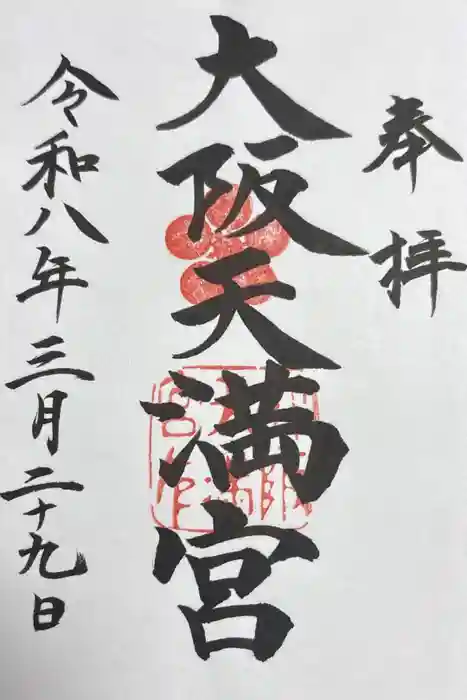 奉拝
大阪天満宮
令和八年三月二十九日